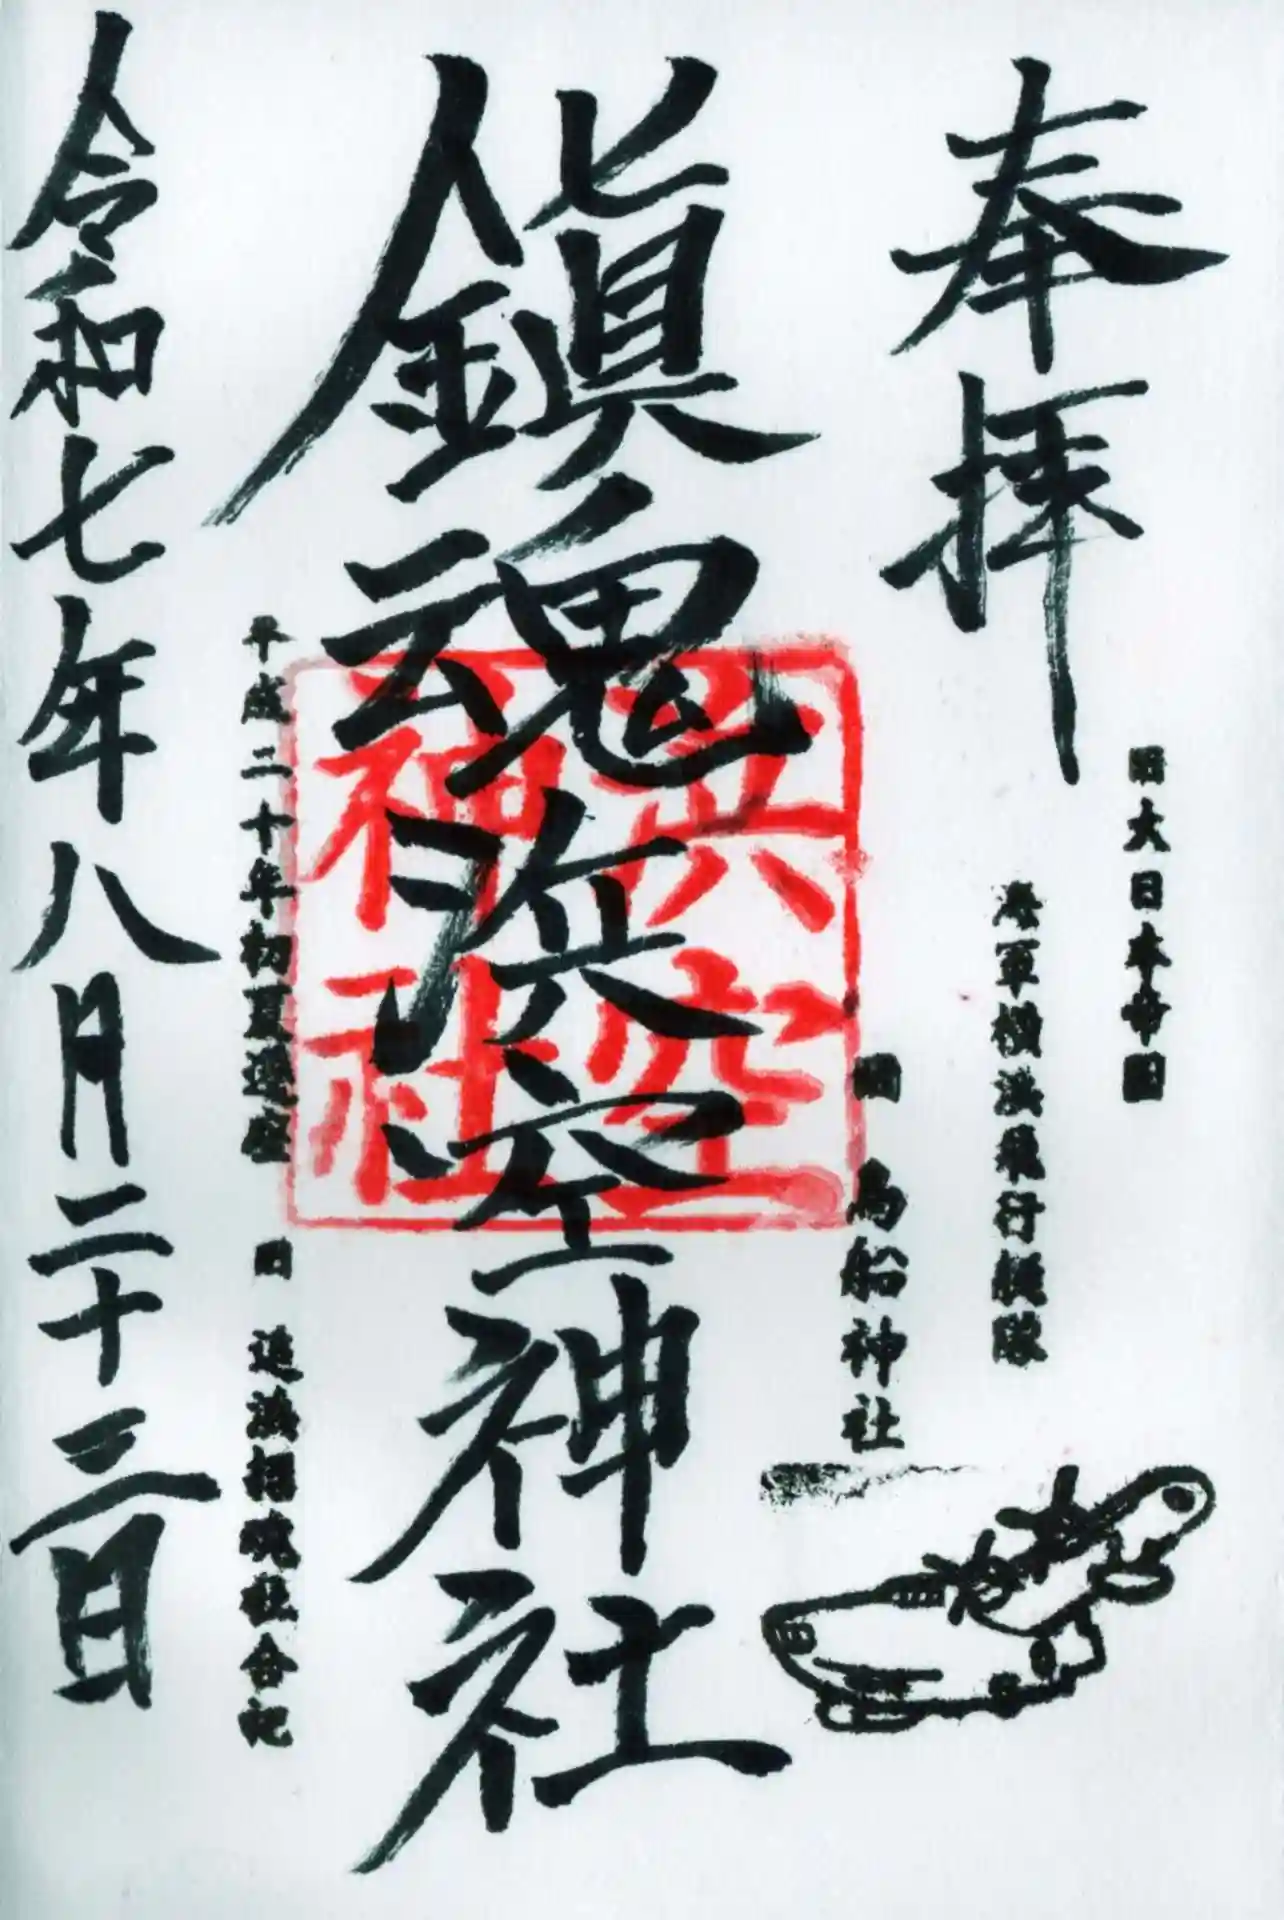 奉拝
旧大日本帝国
海軍横浜飛行艇隊
旧 鳥船神社
鎭魂浜空神社
浜空
神社
平成二十年初夏遷座 旧 追浜招魂社合祀
令和七年八月二十三日